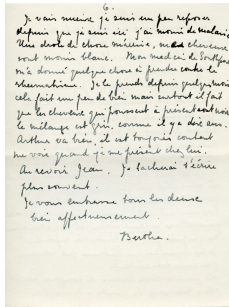 6.
Je vais mieux, je suis un peu reposée
depuis que je suis ici j'ai moins de malaise
Une drôle de chose m'arrive, mes cheveux
sont moins blanc. Mon médecin de
m'a donné quelque chose à prendre contre le
rhumatisme. Je le prends depuis quelques mois
cela fait un peu de bien mais surtout il fait
que les cheveux qui poussent à présent sont noirs
le mélange est gris, comme il y a dix ans.
Arthur va bien, il est toujours content
me voir quand je me présent chez lui.
Au revoir Jean. Je tacherai t'écrire
plus souvent.
Je vous embrasse tous les deux
bien affectueusement.
Bertha.